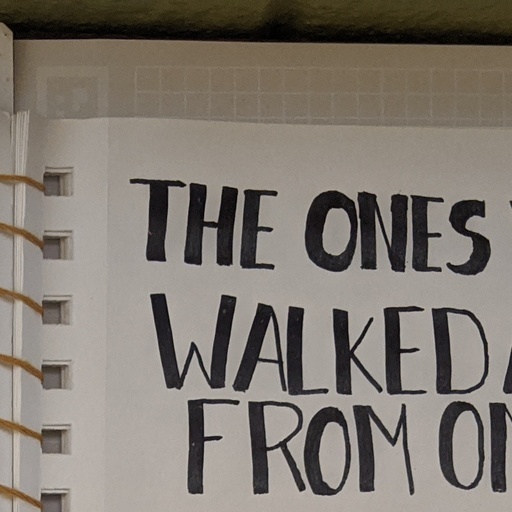 THE ONES
WALKED
FROM